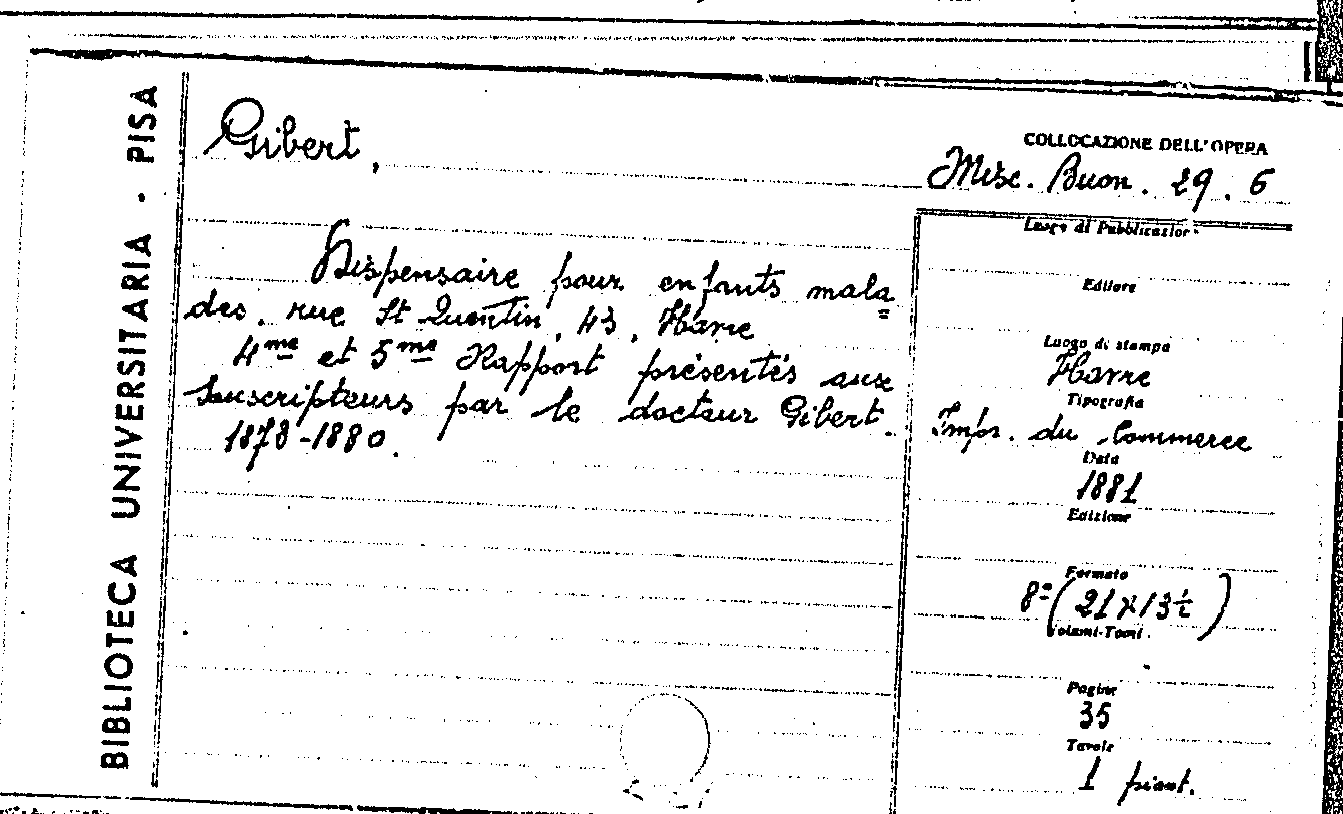 BIBLIOTECA UNIVERSITARIA · PISA
Gibert,
COLLOCAZIONE DELL'OPERA
Misc. Buon. 29. 6
Dispensaire pour enfants mala=
des, rue St Quentin, 43, Havre
4me et 5me Rapport présentés aux
souscripteurs par le docteur Gibert.
1878-1880.
Luogo di Pubblicazione
Editore
Luogo di stampa
Havre
Tipografia
Impr. du Commerce
Data
1881
Edizione
Formato
8° (21 x 13 ½)
Volumi-Tomi
Pagine
35
Tavole
1 piant.